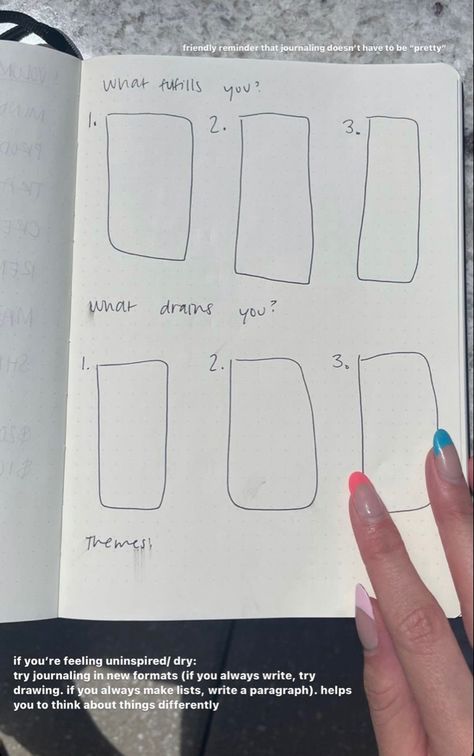 friendly reminder that journaling doesn't have to be "pretty"
What fulfills you?
1. 2. 3.
What drains you?
1. 2. 3.
Themes:
if you're feeling uninspired/ dry:
try journaling in new formats (if you always write, try
drawing. if you always make lists, write a paragraph). helps
you to think about things differently